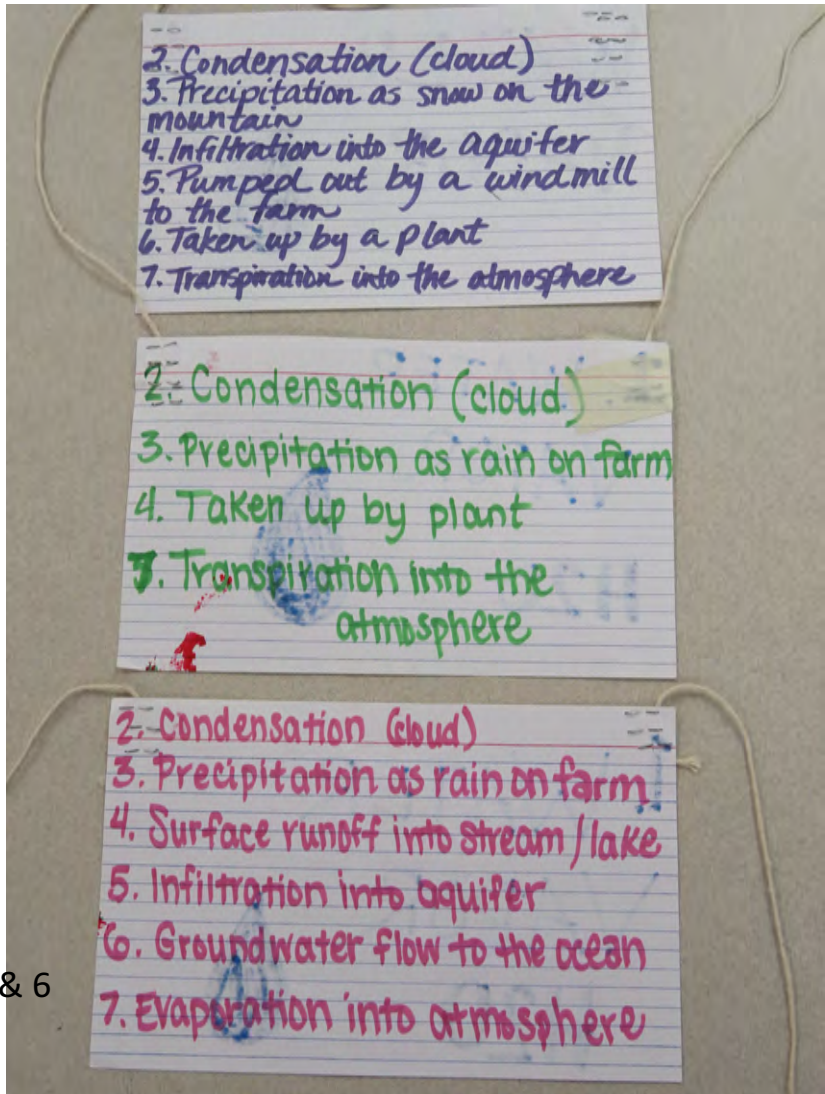 2. Condensation (cloud)
3. Precipitation as snow on the
mountain
4. Infiltration into the aquifer
5. Pumped out by a windmill
to the farm
6. Taken up by a plant
7. Transpiration into the atmosphere
2. Condensation (cloud)
3. Precipitation as rain on farm
4. Taken up by plant
5. Transpiration into the
atmosphere
2. Condensation (cloud)
3. Precipitation as rain on farm
4. Surface runoff into stream/lake
5. Infiltration into aquifer
6. Groundwater flow to the ocean
& 6
7. Evaporation into atmosphere